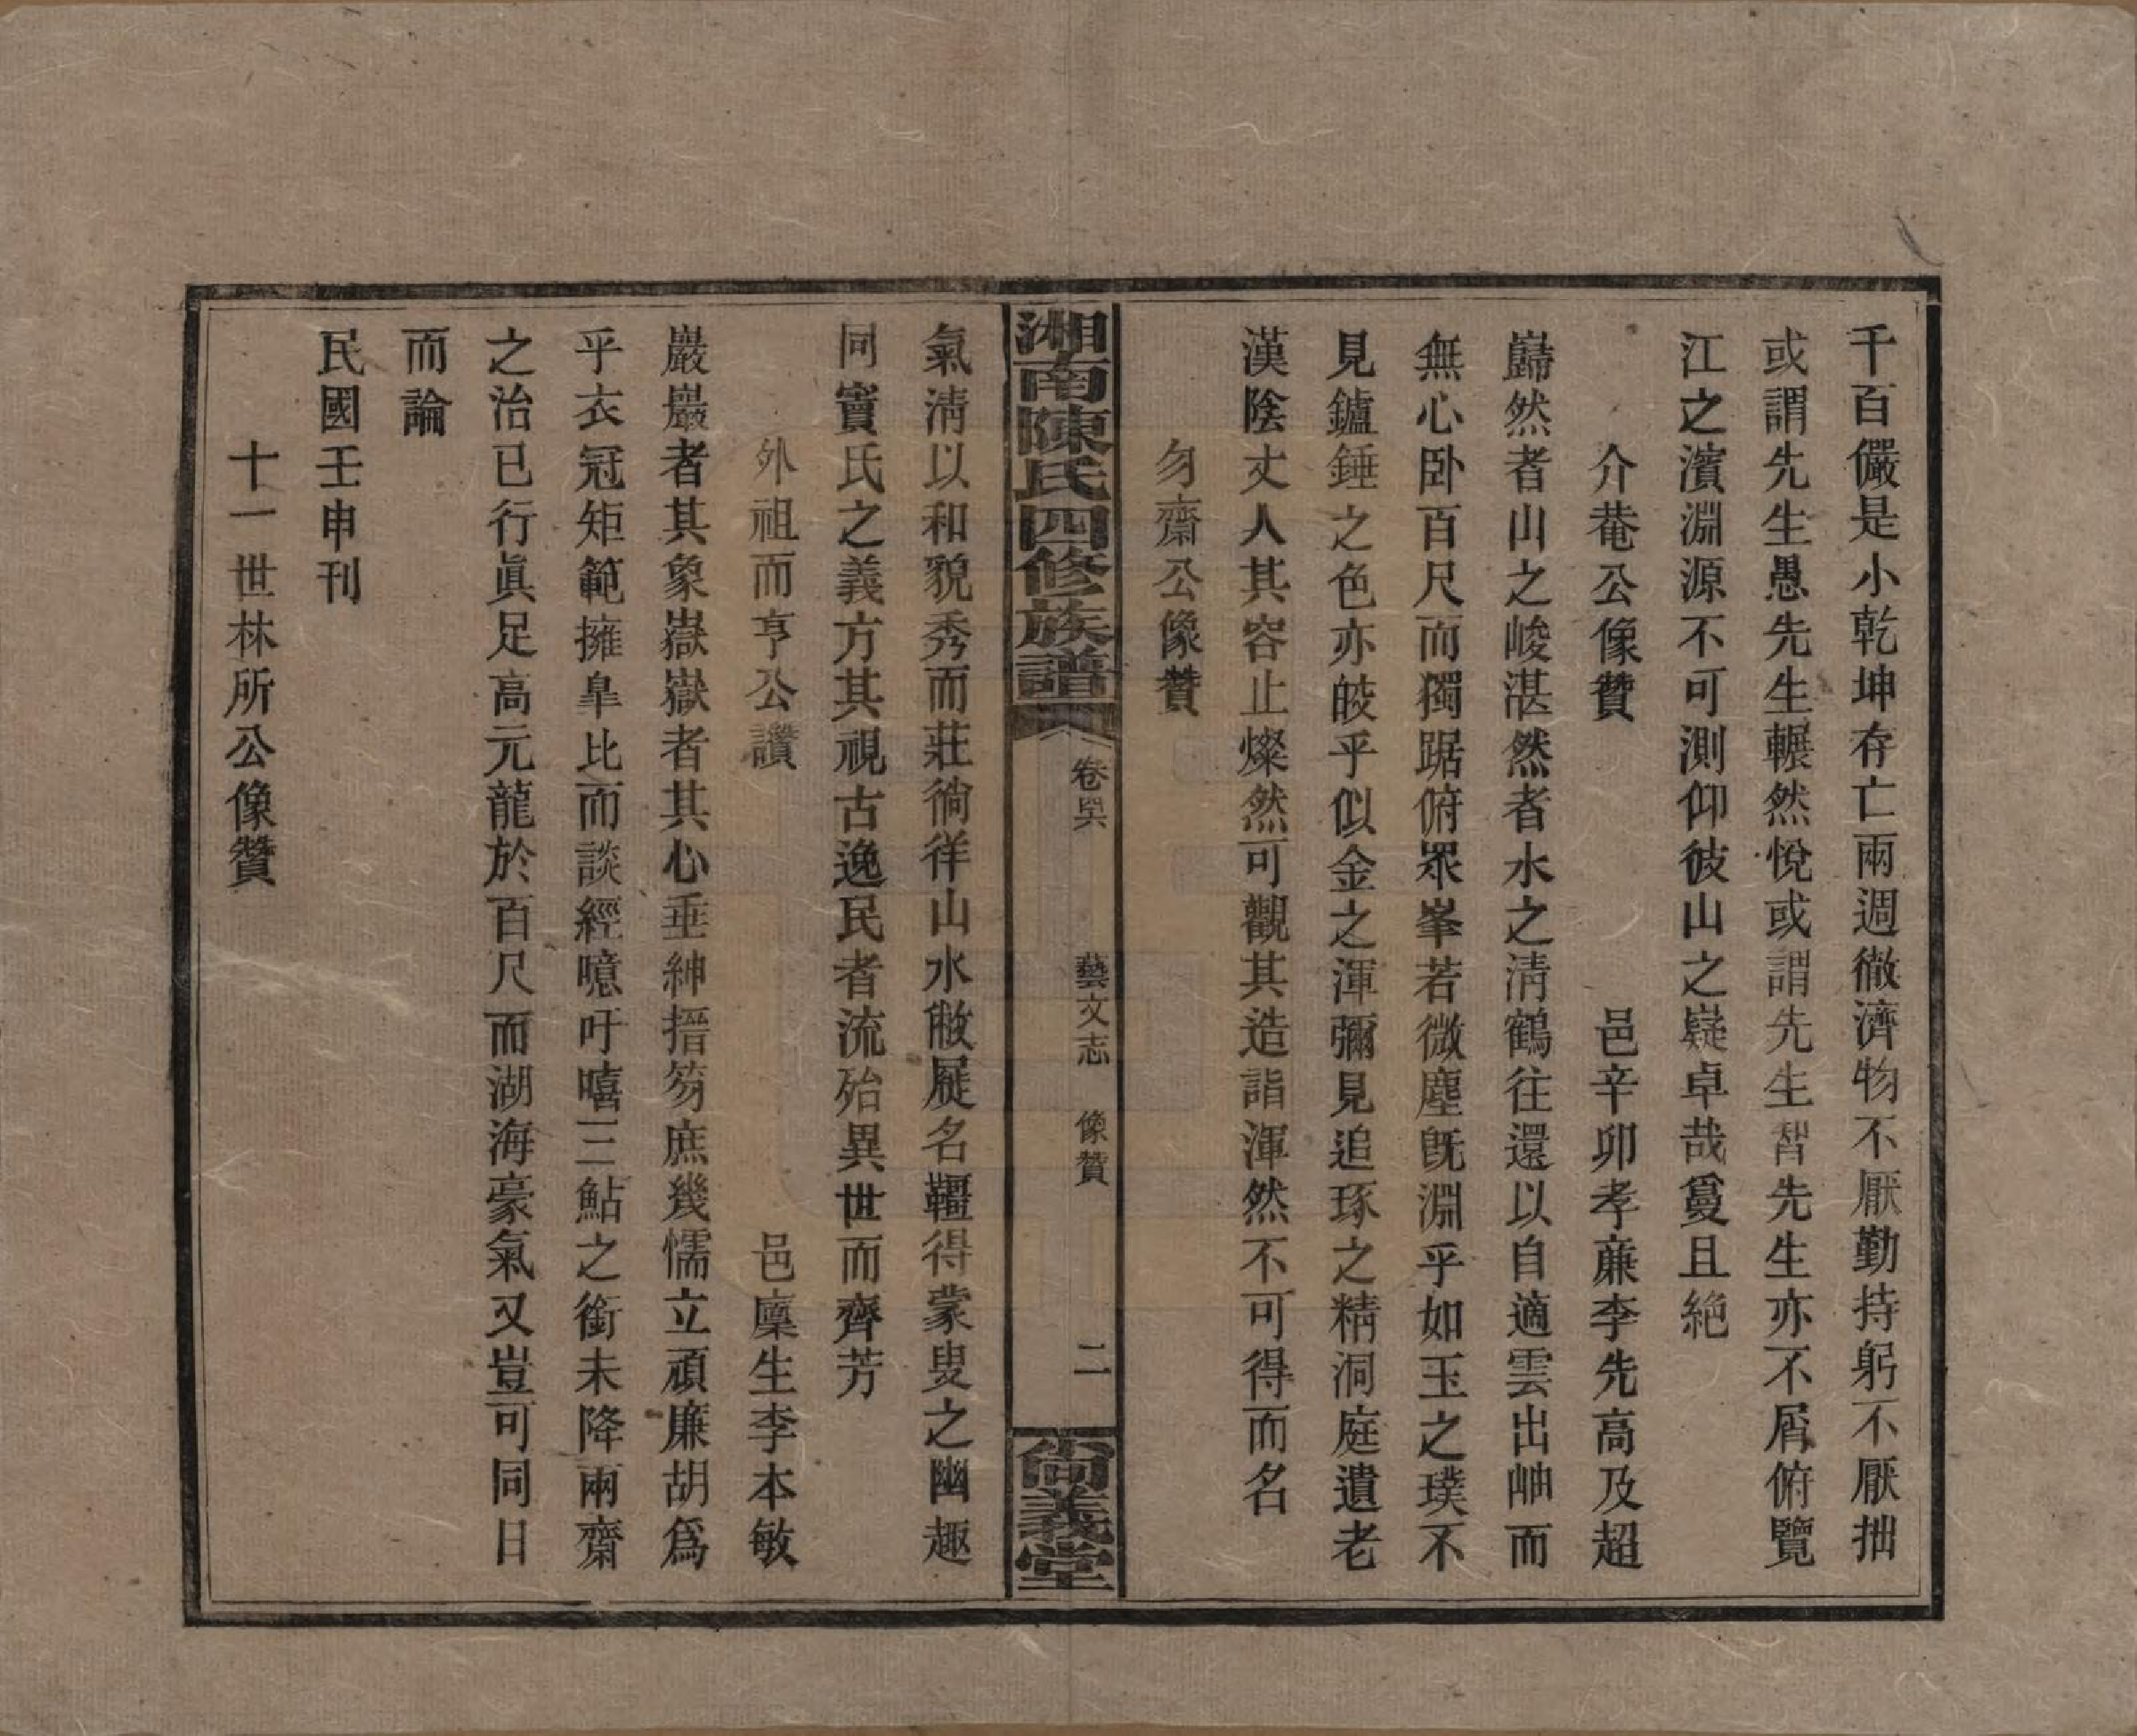 千百儼是小乾坤存亡兩週徹濟物不厭勤持躬不厭拙
或謂先生愚先生輾然悅或謂先生智先生亦不屑俯覽
江之濱淵源不可測仰彼山之嶷卓哉敻且絶
介菴公像贊　邑辛卯孝亷李先高及超
巋然者山之峻湛然者水之淸鶴往還以自適雲出岫而
無心卧百尺而獨踞俯眾峯若微塵旣淵乎如玉之璞不
見鑪錘之色亦皎乎似金之渾彌見追琢之精洞庭遺老
漢陰丈人其容止燦然可觀其造詣渾然不可得而名
勿齋公像贊
湘南陳氏四修族譜　卷　藝文志　像贊　二　尙義堂
氣淸以和貌秀而莊徜徉山水敝屣名韁得蒙叟之幽趣
同竇氏之義方其視古逸民者流殆異世而齊芳
外祖而亨公讚　邑廩生李本敏
巖巖者其象嶽嶽者其心垂紳搢笏庶幾懦立頑廉胡爲
乎衣冠矩範擁皐比而談經噫吁嘻三鮎之銜未降兩齋
之治已行眞足高元龍於百尺而湖海豪氣又豈可同日
而論
民國壬申刊
十一世林所公像贊